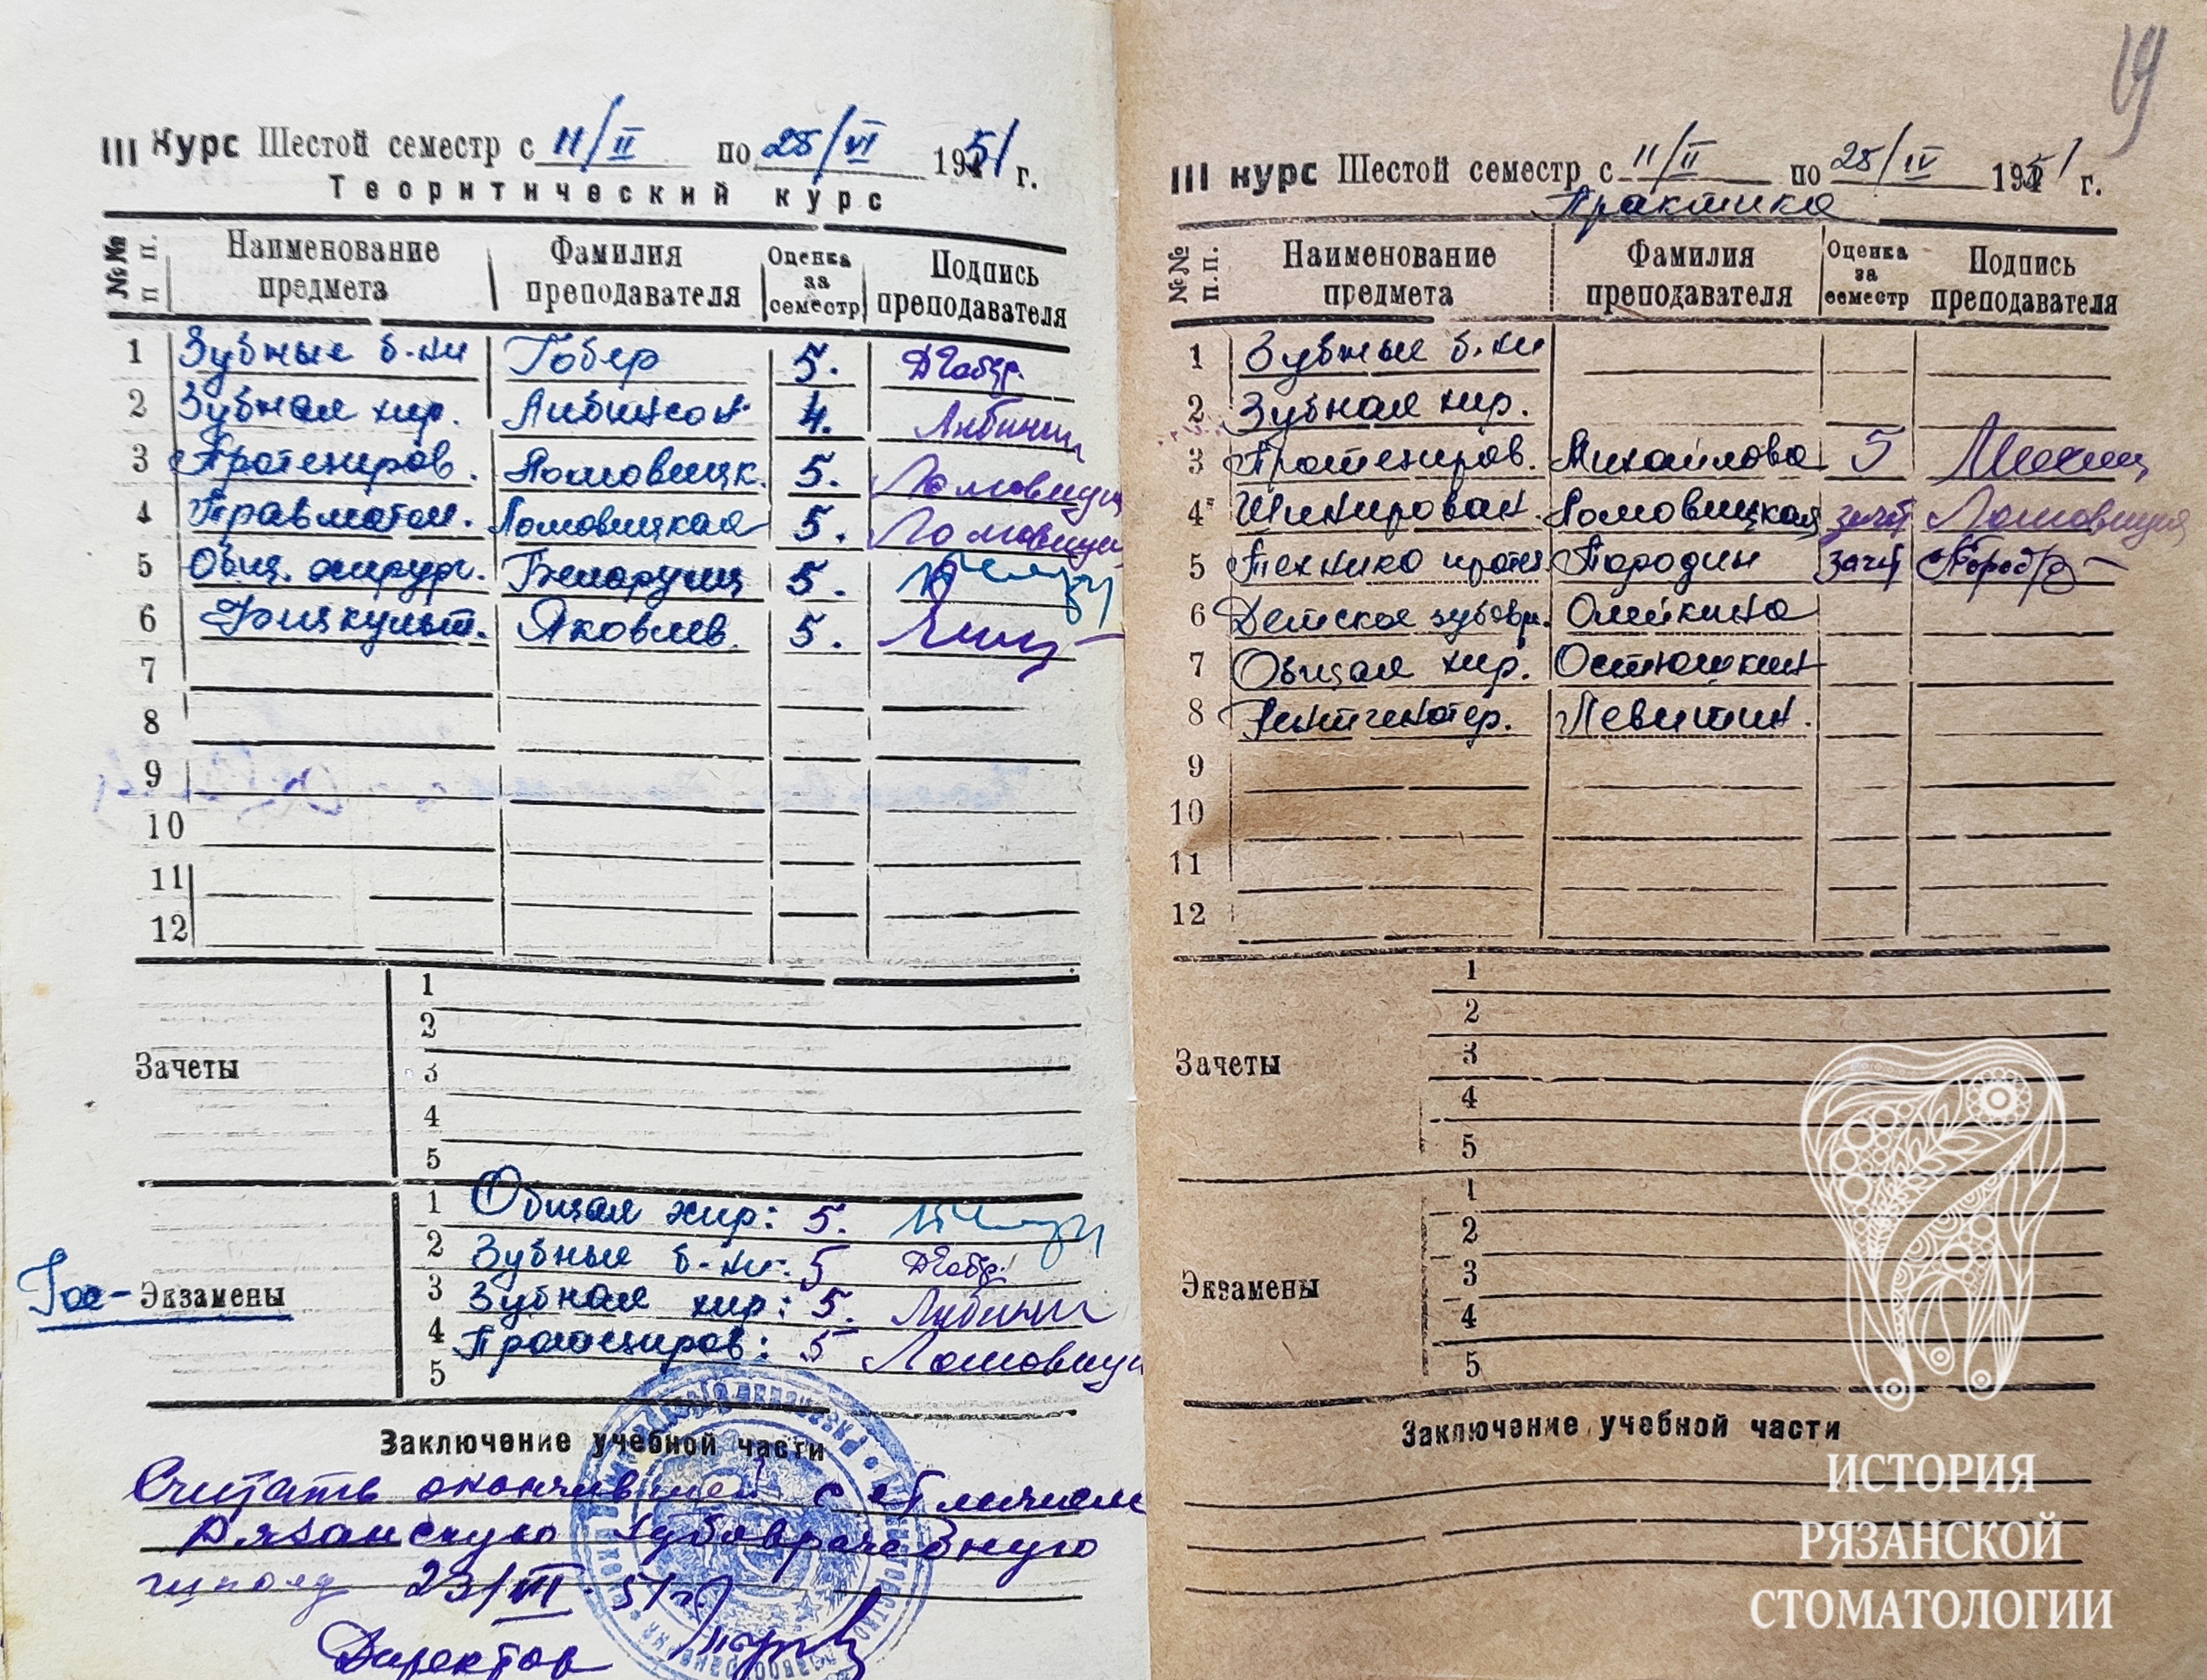 19
III Курс Шестой семестр с 11/II по 25/VI 1951 г.
Теоритический курс
№№ п п. Наименование предмета Фамилия преподавателя Оценка за семестр Подпись преподавателя
1 Зубные б-ни Гобер 5.
2 Зубная хир. Либинсон 4.
3 Протезиров. Ломовицк. 5. Ломовицк
4 Травматол. Ломовицкая 5. Ломовицк
5 Общ. хирург. 5.
6 Физкульт. Яковлев. 5.
7
8
9
10
11
12
Зачеты
1
2
3
4
5
Гос-Экзамены
1 Общая хир: 5.
2 Зубные б-ни: 5
3 Зубная хир: 5.
4 Протезиров: 5 Ломовицк
5
Заключение учебной части
Считать окончившей с отличием
Рязанскую зубоврачебную
школу 23/VII 51 г.
Директор
III курс Шестой семестр с 11/II по 25/IV 1951 г.
Практика
№№ п.п. Наименование предмета Фамилия преподавателя Оценка за семестр Подпись преподавателя
1 Зубные б-ни
2 Зубная хир.
3 Протезиров. Михайлова 5
4 Шинирован. Ломовицкая зачёт Ломовицкая
5 Технико протез Породин зачёт
6 Детское зубовр. Олейкина
7 Общая хир. Остюшкин
8 Рентгенотер. Левитин.
9
10
11
12
Зачеты
1
2
3
4
5
Экзамены
1
2
3
4
5
Заключение учебной части
ИСТОРИЯ
РЯЗАНСКОЙ
СТОМАТОЛОГИИ